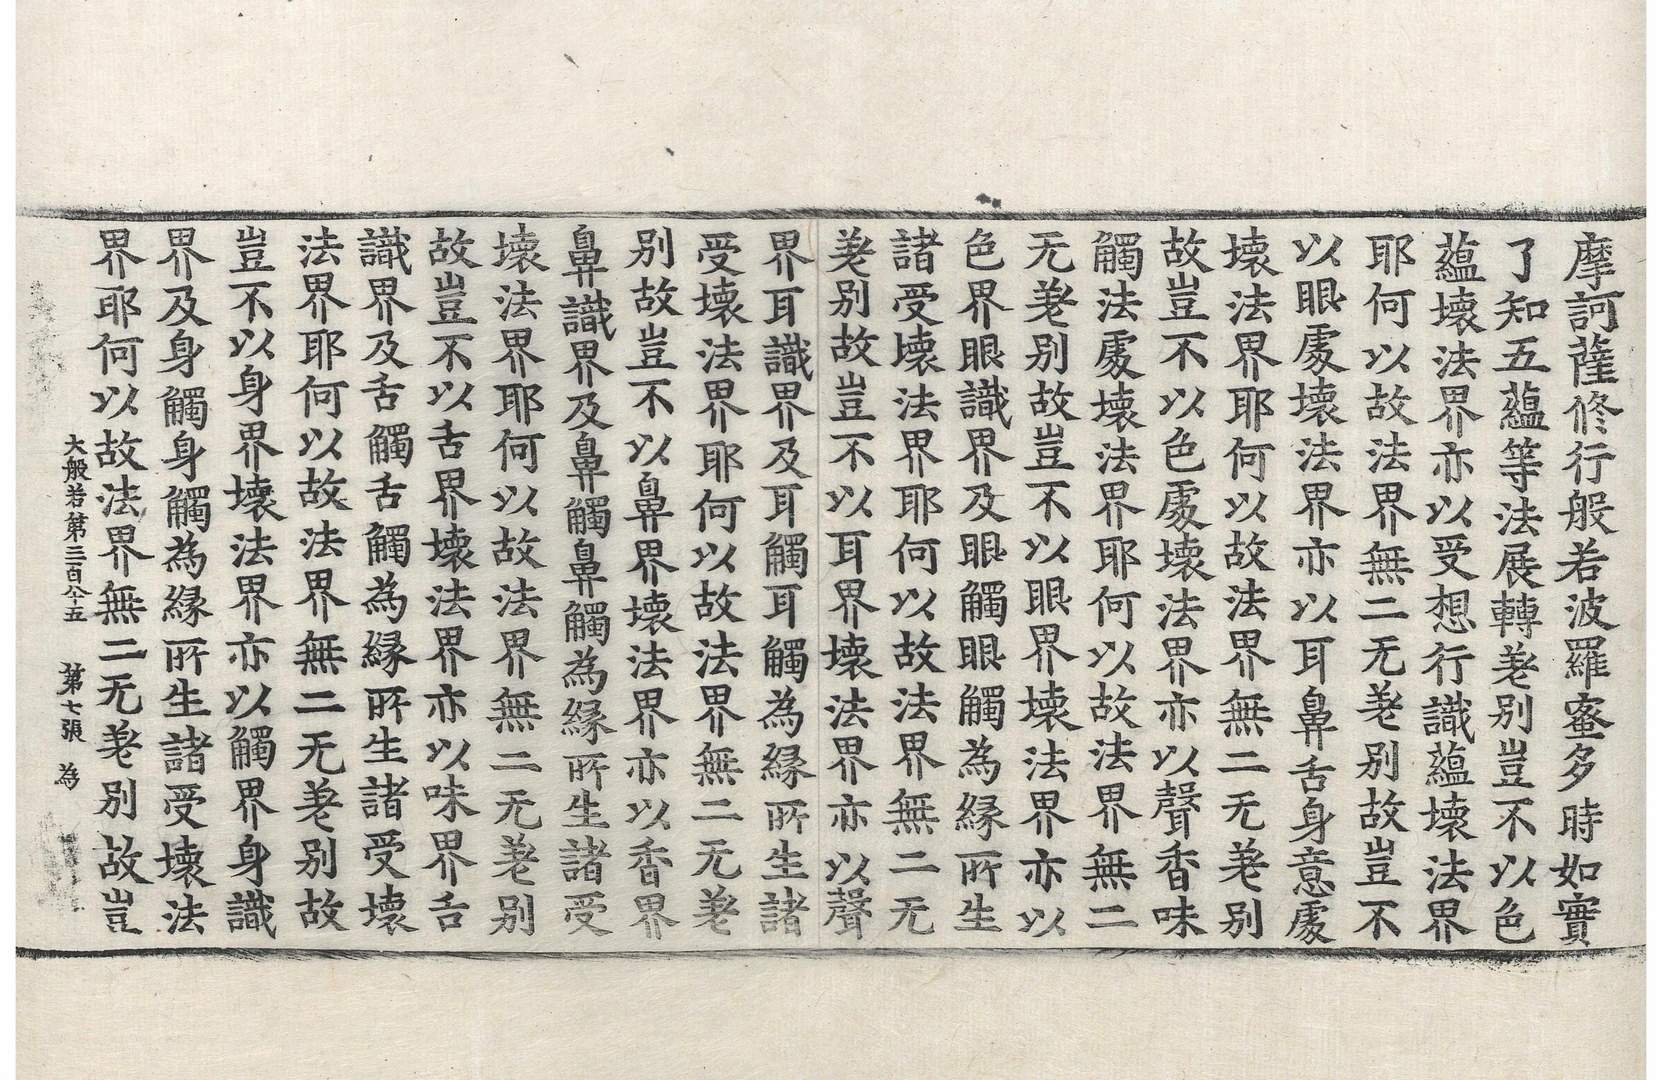 摩訶薩修行般若波羅蜜多時如實
了知五蘊等法展轉差別豈不以色
蘊壞法界亦以受想行識蘊壞法界
耶何以故法界無二无差別故豈不
以眼處壞法界亦以耳鼻舌身意處
壞法界耶何以故法界無二无差別
故豈不以色處壞法界亦以聲香味
觸法處壞法界耶何以故法界無二
无差別故豈不以眼界壞法界亦以
色界眼識界及眼觸眼觸為緣所生
諸受壞法界耶何以故法界無二无
差別故豈不以耳界壞法界亦以聲
界耳識界及耳觸耳觸為緣所生諸
受壞法界耶何以故法界無二无差
別故豈不以鼻界壞法界亦以香界
鼻識界及鼻觸鼻觸為緣所生諸受
壞法界耶何以故法界無二无差別
故豈不以舌界壞法界亦以味界舌
識界及舌觸舌觸為緣所生諸受壞
法界耶何以故法界無二无差別故
豈不以身界壞法界亦以觸界身識
界及身觸身觸為緣所生諸受壞法
界耶何以故法界無二无差別故豈
大般若第三百八十五 第七張 為